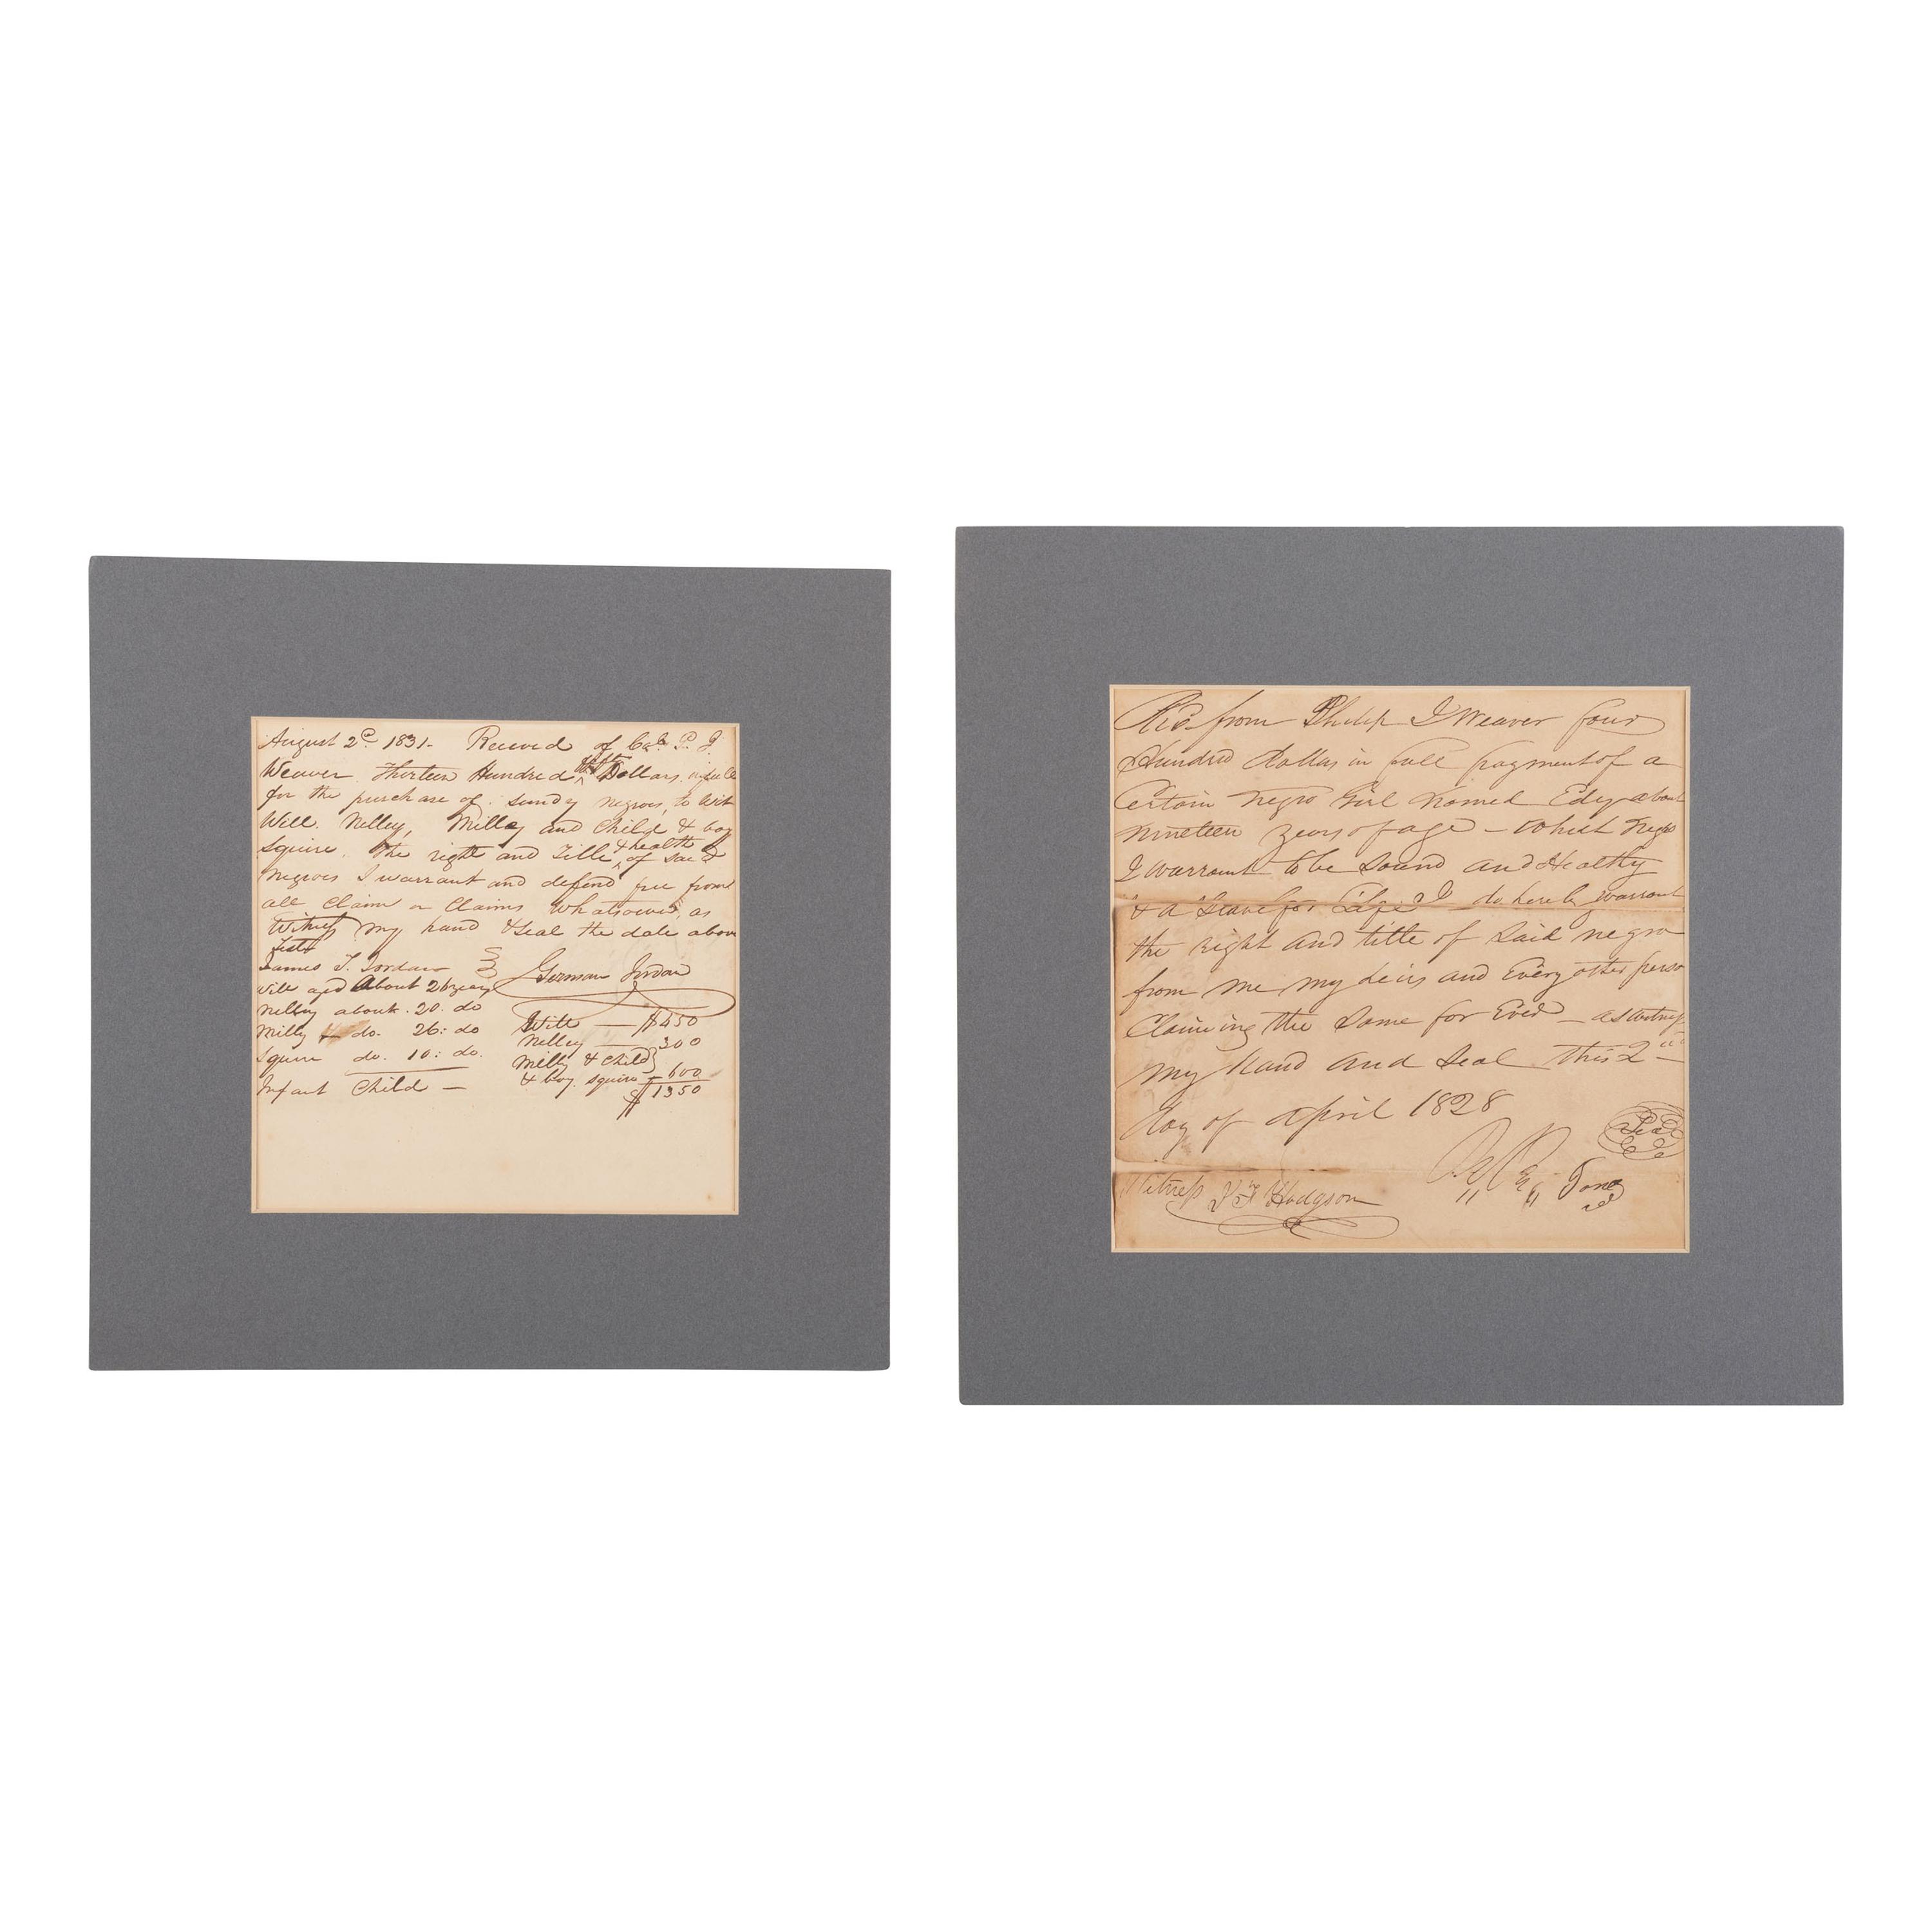 August 2d 1831. Received of Col. P. J.
Weaver Thirteen Hundred & fifty Dollars in full
for the purchase of Sundy negroes, to wit
Will. Nelley, Milley and Child & boy
Squire. The right and Title & health of said
negroes I warrant and defend free from
all Claim or Claims Whatsoever, as
Witness my hand & seal the date above
Test
James T. Jordan German Jordan
Will aged About 26 years
Nelley about. 20. do
Milly do. 26: do
Squire do. 10: do.
Infant Child —
Will — $450
Nelley — 300
Milly & Child
& boy. Squire — 600
$1350
Rec from Philip J Weaver four
Hundred Dollars in full payment of a
Certain negro Girl Named Edey about
nineteen years of age – which negro
I warrant to be Sound and Healthy
& a Slave for Life I do hereby warrant
the right and title of Said negro
from me my heirs and Every other person
Claiming the Same for Ever – as witness
my hand and Seal this 2nd
day of April 1828
Seal
Jones
Witness Hodgson